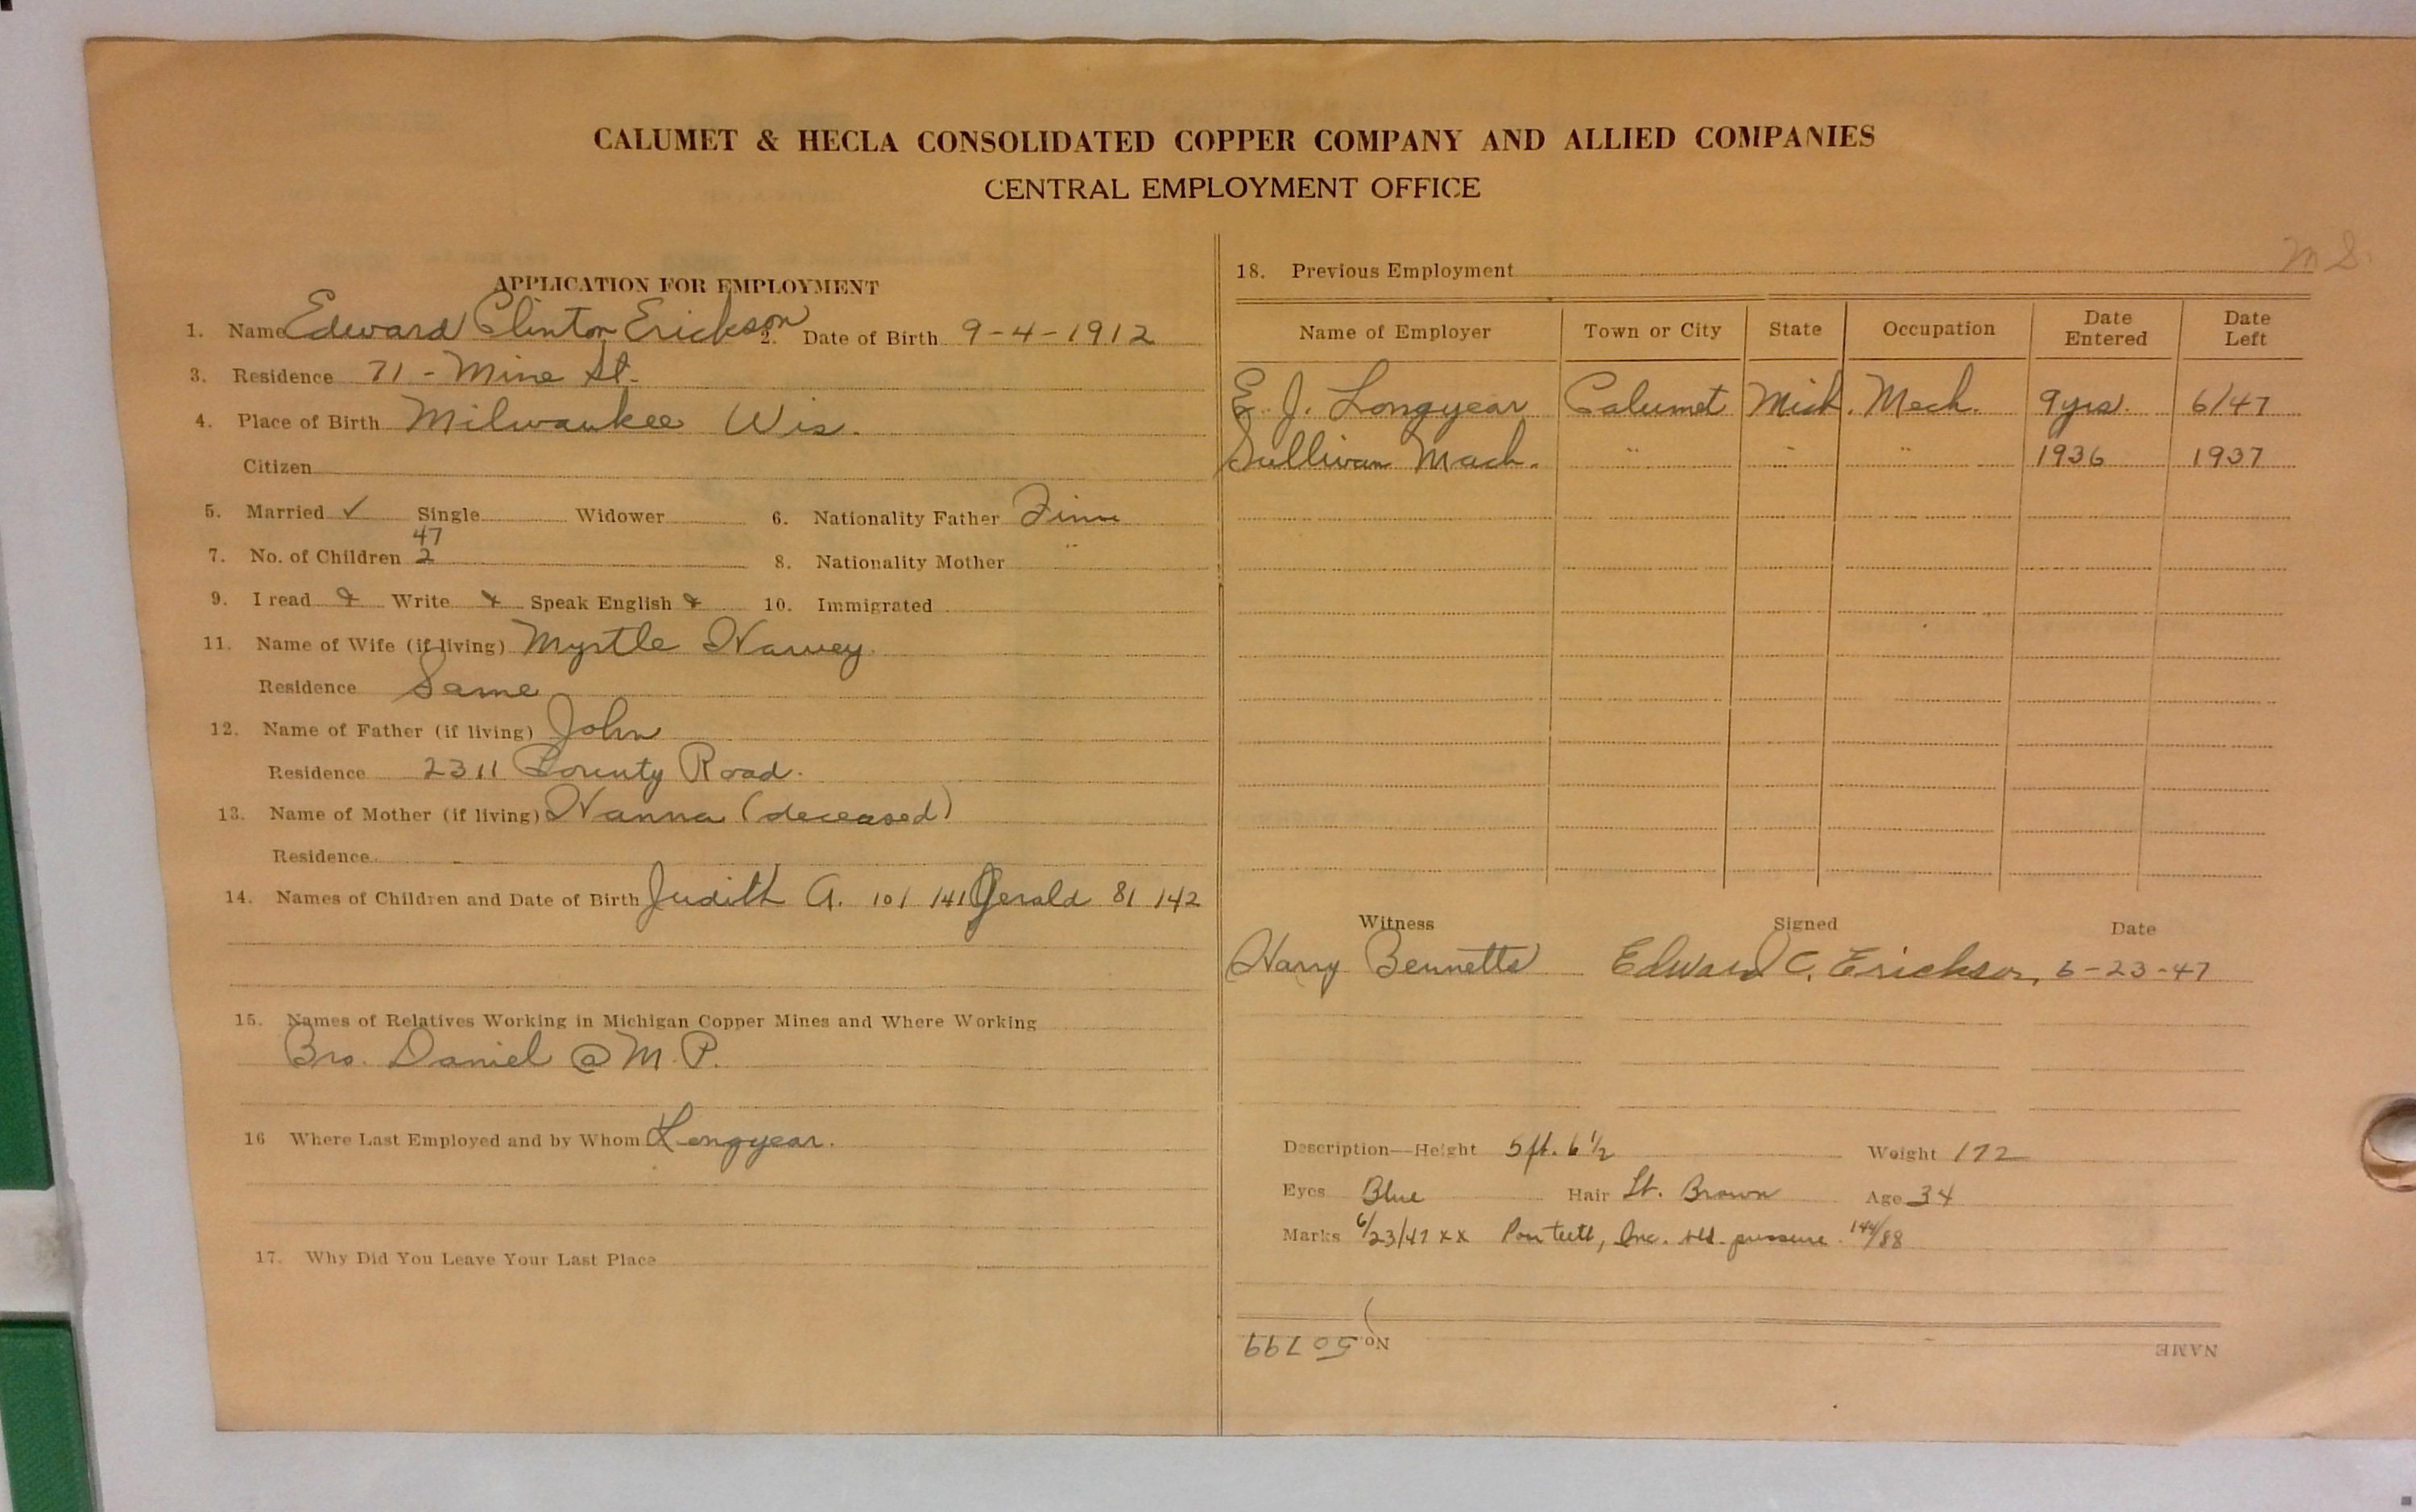 CALUMET & HECLA CONSOLIDATED COPPER COMPANY AND ALLIED COMPANIES
CENTRAL EMPLOYMENT OFFICE
APPLICATION FOR EMPLOYMENT
1. Name Edward Clinton Erickson 2. Date of Birth 9-4-1912
3. Residence 71 - Mine St.
4. Place of Birth Milwaukee Wis.
Citizen
5. Married ✓ Single Widower 6. Nationality Father Finn
47
7. No. of Children 2 8. Nationality Mother "
9. I read Write Speak English 10. Immigrated
11. Name of Wife (if living) Myrtle Harvey
Residence Same
12. Name of Father (if living) John
Residence 2311 County Road.
13. Name of Mother (if living) Hanna (deceased)
Residence
14. Names of Children and Date of Birth Judith A. 10/ /41 Gerald 8/ /42
15. Names of Relatives Working in Michigan Copper Mines and Where Working
Bro. Daniel @ M. P.
16 Where Last Employed and by Whom Longyear.
17. Why Did You Leave Your Last Place
M S.
18. Previous Employment
Name of Employer Town or City State Occupation Date Entered Date Left
E. J. Longyear Calumet Mich. Mech. 9 yrs. 6/47
Sullivan Mach. " " " 1936 1937
Witness Signed Date
Harry Bennetts Edward C. Erickson 6-23-47
Description—Height 5 ft. 6 1/2 Weight 172
Eyes Blue Hair Lt. Brown Age 34
Marks 6/23/47 xx Poor teeth, Inc. bld. pressure. 144/88
No. 50799 NAME